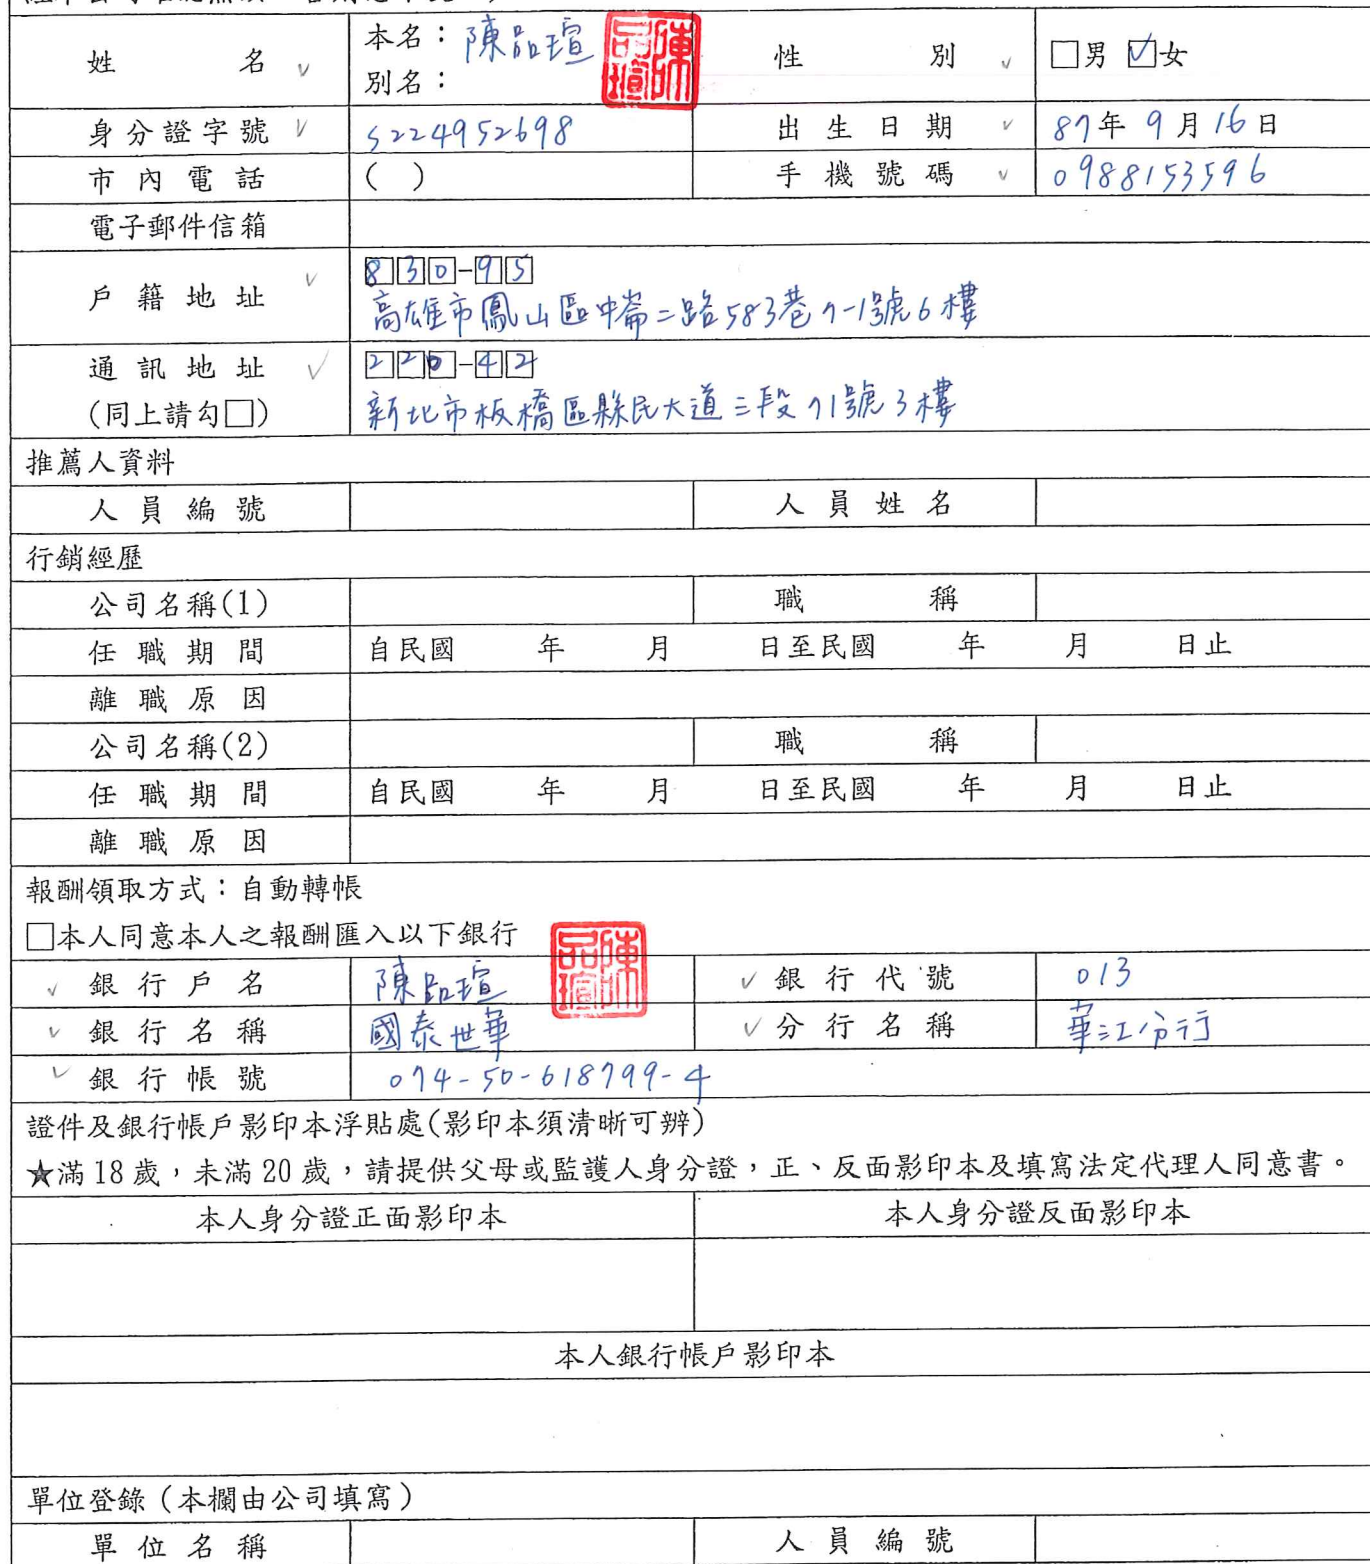 姓名 本名：陳品瑄 性別 □男 ☑女
別名：
身分證字號 S224952698 出生日期 87年9月16日
市內電話 ( ) 手機號碼 0988153596
電子郵件信箱
戶籍地址 830-95
高雄市鳳山區中崙二路583巷7-1號6樓
通訊地址 220-42
(同上請勾□) 新北市板橋區縣民大道三段71號3樓
推薦人資料
人員編號 人員姓名
行銷經歷
公司名稱(1) 職稱
任職期間 自民國 年 月 日至民國 年 月 日止
離職原因
公司名稱(2) 職稱
任職期間 自民國 年 月 日至民國 年 月 日止
離職原因
報酬領取方式：自動轉帳
□本人同意本人之報酬匯入以下銀行
銀行戶名 陳品瑄 銀行代號 013
銀行名稱 國泰世華 分行名稱 華江分行
銀行帳號 074-50-618799-4
證件及銀行帳戶影印本浮貼處(影印本須清晰可辨)
★滿18歲，未滿20歲，請提供父母或監護人身分證，正、反面影印本及填寫法定代理人同意書。
本人身分證正面影印本 本人身分證反面影印本
本人銀行帳戶影印本
單位登錄（本欄由公司填寫）
單位名稱 人員編號